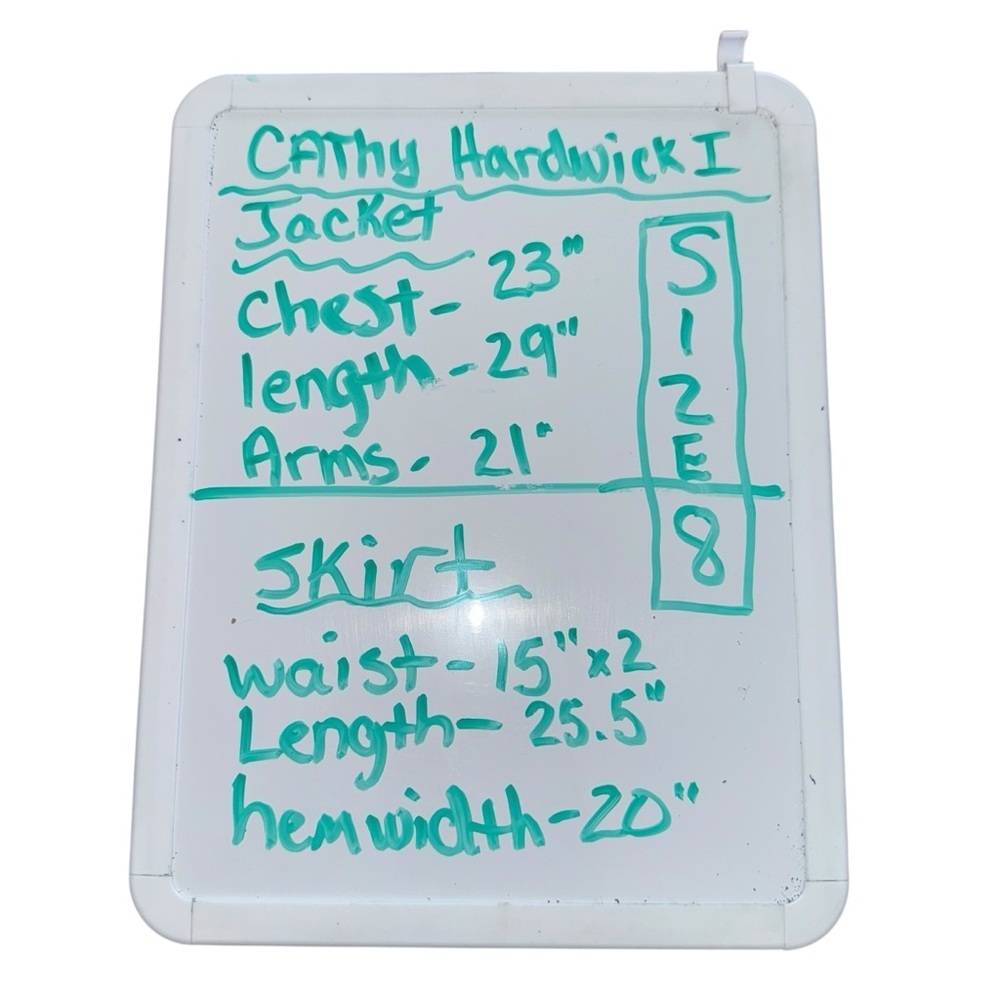 CAThy Hardwick I
Jacket
Chest- 23"
length - 29"
Arms - 21"
SIZE
8
SKirt
waist - 15" x2
Length- 25.5"
hem width - 20"